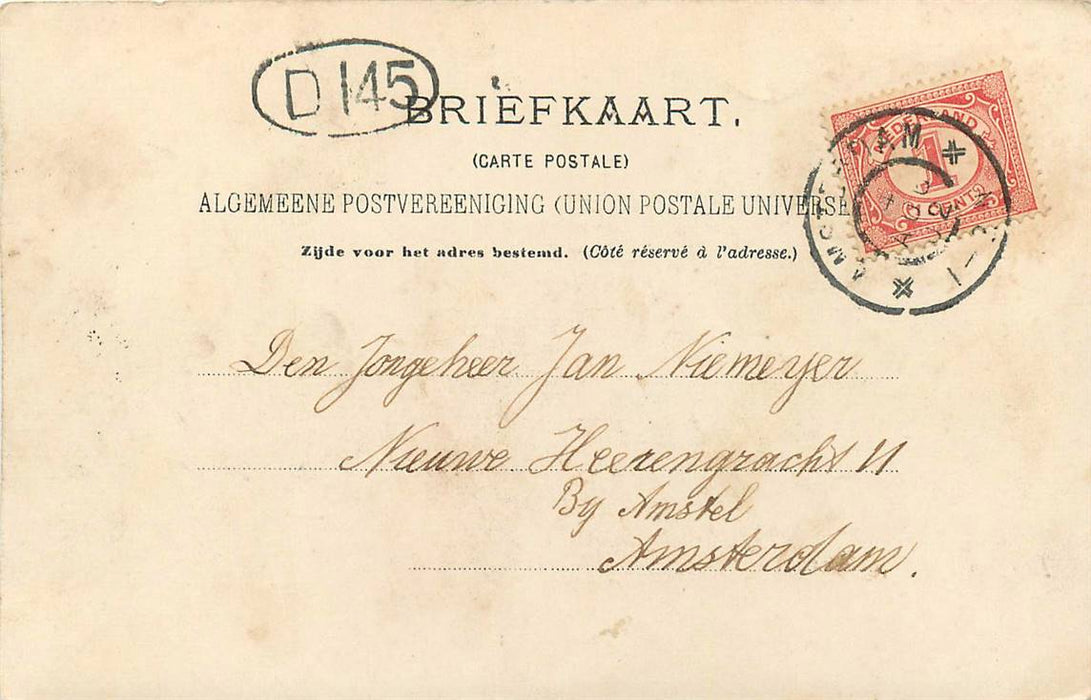 D 145
BRIEFKAART.
(CARTE POSTALE)
ALGEMEENE POSTVEREENIGING (UNION POSTALE UNIVERSE
Zijde voor het adres bestemd. (Côté réservé à l'adresse.)
NEDERLAND
1
AMSTERDAM
Den Jongeheer Jan Niemeyer
Nieuwe Heerengracht 11
By Amstel
Amsterdam.